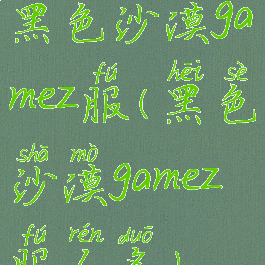 黑色沙漠ga
fú hēi sè
mez服(黑色
shā mò
沙漠gamez
fú rén duō
服人多)